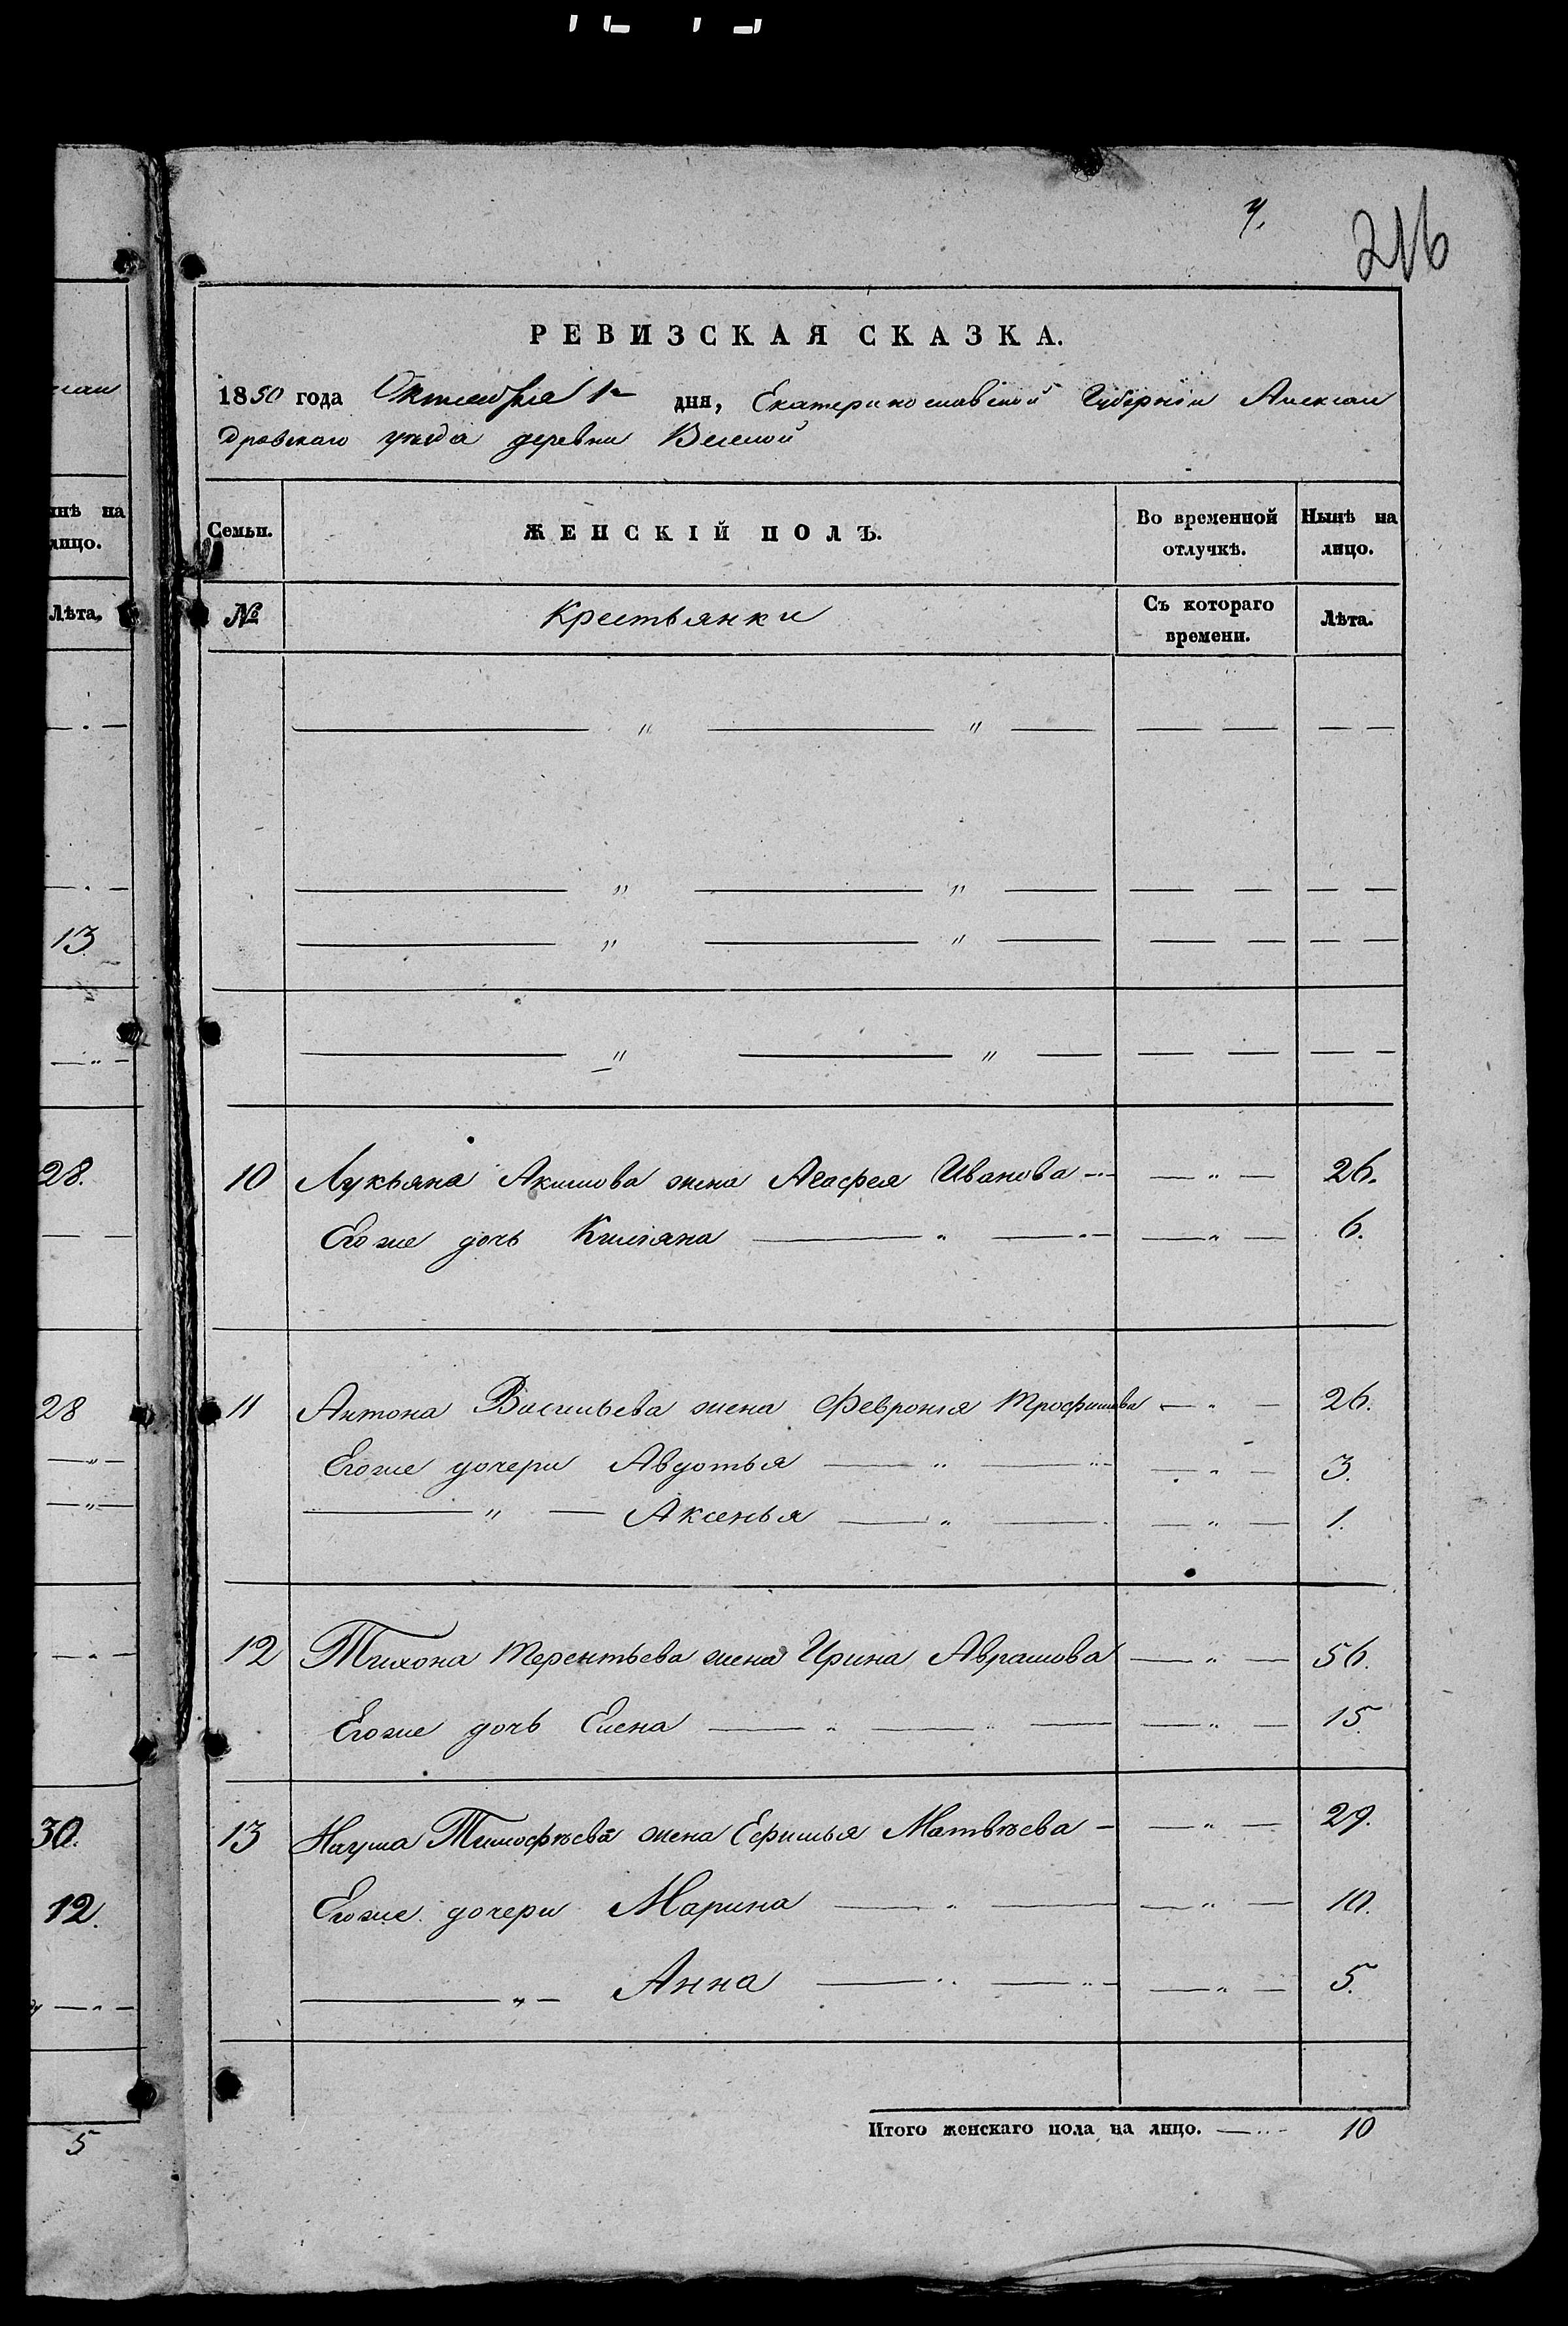 216
РЕВИЗСКАЯ СКАЗКА.
1850 года Октября 1 дня, Екатеринославской Губерніи Алексан
дровскаго уѣзда деревни Веселой
нѣ на
лицо.
Семьи.
ЖЕНСКІЙ ПОЛЪ.
Во временной
отлучкѣ.
Нынѣ на
лицо.
Лѣта.
№
Крестьянки
Съ котораго
времени.
Лѣта.
— " — " — — — — —
— " — " — — — — —
13
— " — " — — — — —
— " — " — — — — —
28.
10 Лукьяна Акимова жена Агафея Иванова — " — 26.
Егоже дочь — " — — " — 6.
28
11 Антона Васильева жена Февронія Трофимова — " — 26.
Егоже дочери Авдотья — " — — " — 3.
— " — Аксенья — " — — " — 1.
12 Тихона Терентьева жена Ирина Аврамова — " — 56.
Егоже дочь Елена — " — " — — " — 15.
30.
13 Наума Тимофѣева жена Ефимья Матвѣева — — " — 29.
12.
Егоже дочери Марина — " — — " — 10.
— " — Анна — " — " — — " — 5.
Итого женскаго пола на лицо. — 10
5